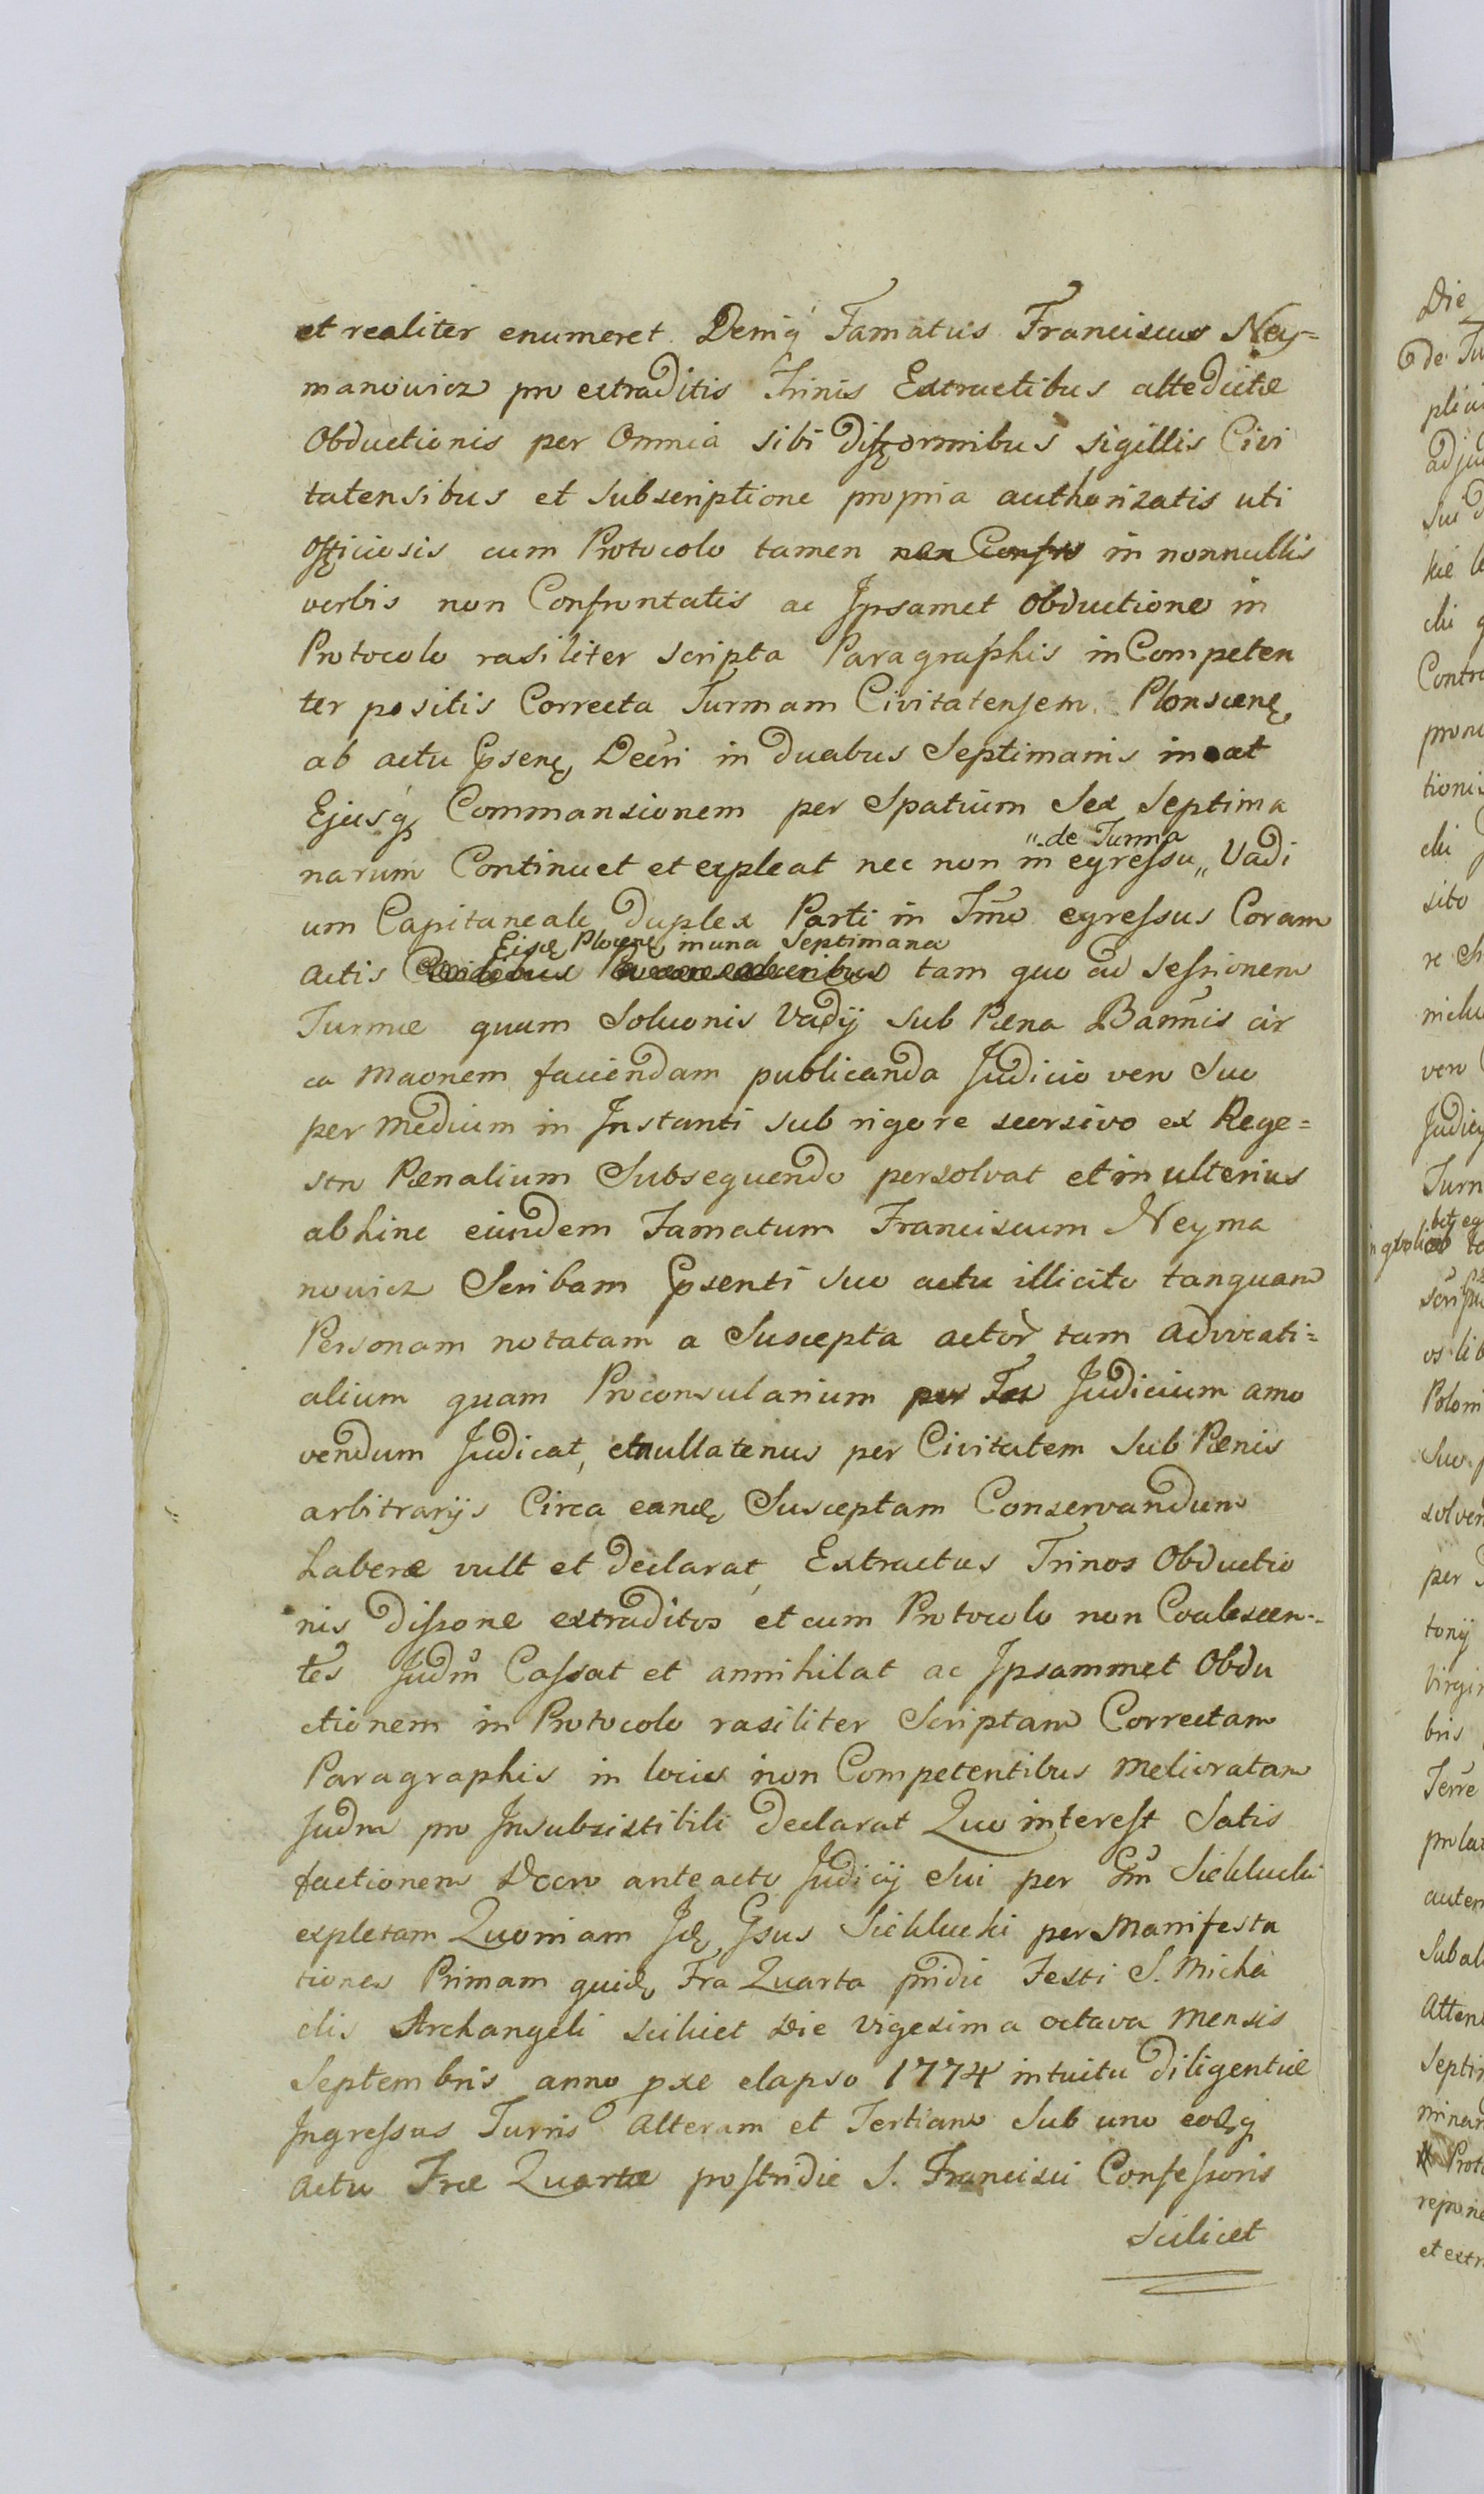 et realiter enumeret. Deniq Famatus Franciscus Ney=
manowicz pro extraditis Trinis Extractibus altedictæ
Obductionis per Omnia sibi difformibus sigillis Civi
tatensibus et Subscriptione propria authorizatis uti
Officiosis cum Protocolo tamen non Confro in nonnullis
verbis non Confrontatis ac Ipsamet Obductione in
Protocolo rasiliter scripta Paragraphis inCompeten
ter positis Correcta Turmam Civitatensem Plonscen
ab actu Psen Decri in duabus Septimanis ineat
Ejusq Commansionem per Spatium Sex Septima
"de Turma
narum Continuet et expleat nec non in egressu" Vadi
um Capitaneale duplex Parti in Tmo egressus Coram
Eisd Plocen in una Septimana
actis tam quo ad sessionem
Turmæ quam Soluonis Vadij sub Pæna Bannis cir
ca Maonem faciendam publicanda Judicio vero Suo
per Medium in Instanti sub rigore seorsivo ex Rege=
stro Pænalium Subsequendo persolvat et in ulterius
abhinc eiundem Famatum Franciscum Neyma
nowicz Scribam Psenti suo actu illicito tanquam
Personam notatam a Suscepta actor tam advocati=
alium quam Proconsularium per Judicium amo
vendum Judicat, et nullatenus per Civitatem Sub Pænis
arbitrarijs Circa eand Susceptam Conservandum
habere vult et declarat, Extractus Trinos Obductio
nis dissone extraditos et cum Protocolo non Coalescen=
tes Judm Cassat et annihilat ac Ipsammet Obdu
ctionem in Protocolo rasiliter Scriptam Correctam
Paragraphis in locis non Competentibus Melioratam
Judm pro Insubsistibili declarat Quo interest Satis
factionem Dcro anteacto Judicij Sui per Gm Sieklucki
expletam Quoniam Id Gsus Sieklucki per Manifesta
tiones Primam quid Fra Quarta pridie Festi S. Micha
elis Archangeli scilicet Die vigesima octava Mensis
Septembris anno pxe elapso 1774 intuitu diligentiæ
Ingressus Turris Alteram et Tertiam Sub uno eodq
actu Fræ Quartæ postridie S. Francisci Confessoris
scilicet